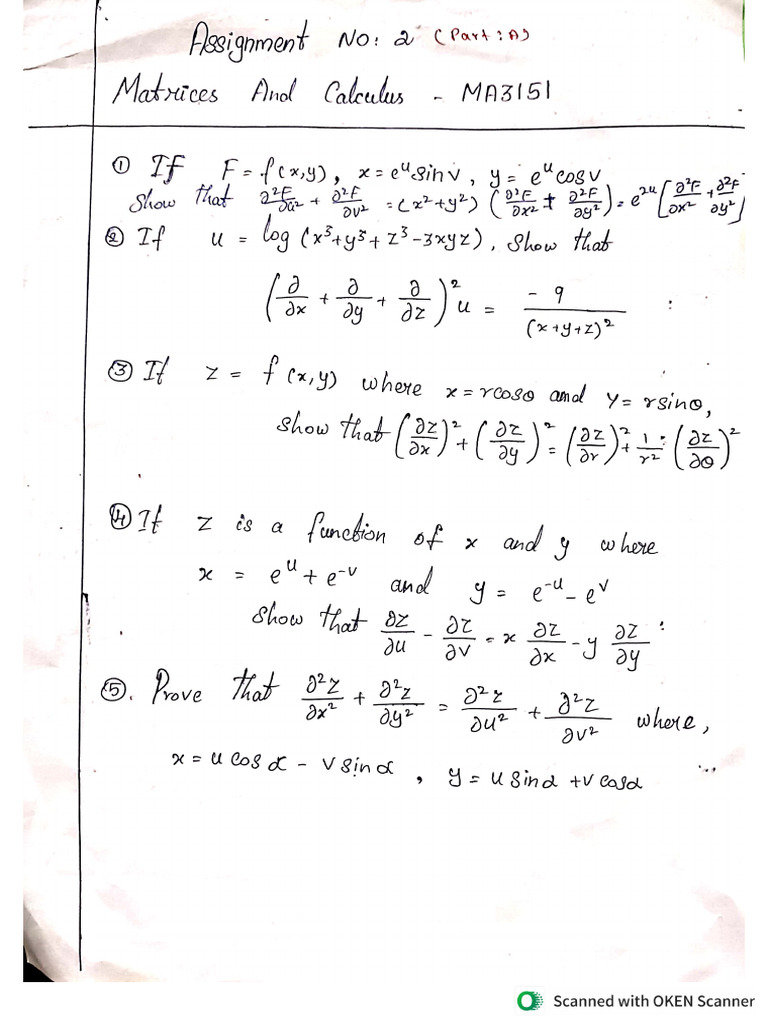 Assignment No: 2 (Part: A)
Matrices And Calculus - MA3151
① If F = f(x,y), x = e^u sin v, y = e^u cos v
Show that ∂²F/∂u² + ∂²F/∂v² = (x²+y²) (∂²F/∂x² + ∂²F/∂y²) = e^2u [∂²F/∂x² + ∂²F/∂y²]
② If u = log (x³+y³+z³-3xyz), show that
(∂/∂x + ∂/∂y + ∂/∂z)² u = -9/(x+y+z)² :
③ If z = f(x,y) where x = r cosθ and y = r sinθ,
show that (∂z/∂x)² + (∂z/∂y)² = (∂z/∂r)² + 1/r² : (∂z/∂θ)²
④ If z is a function of x and y where
x = e^u + e^-v and y = e^-u - e^v
show that ∂z/∂u - ∂z/∂v = x ∂z/∂x - y ∂z/∂y :
⑤. Prove that ∂²z/∂x² + ∂²z/∂y² = ∂²z/∂u² + ∂²z/∂v² where,
x = u cos α - v sin α, y = u sin α + v cos α ...
Scanned with OKEN Scanner